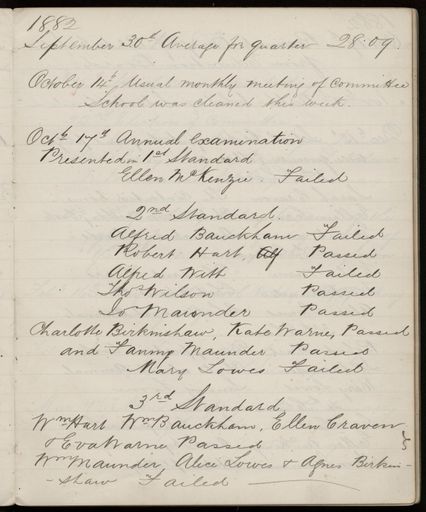 1882
September 30th Average for quarter 28.09
October 14th, Usual monthly meeting of Committee
School was cleaned this week.
Octb 17th Annual Examination
Presented in 1st Standard
Ellen McKenzie. Failed
2nd Standard.
Alfred Bauckham Failed
Robert Hart, Passed
Alfred Witt Failed
Thos Wilson Passed
Jo Maunder Passed
Charlotte Birkinshaw, Kate Warne, Passed
and Fanny Maunder Passed
Mary Lowes Failed
3rd Standard
Wm Hart Wm Bauckham, Ellen Craven
& Eva Warne Passed
Wm Maunder, Alice Lowes & Agnes Birkin-
-shaw Failed